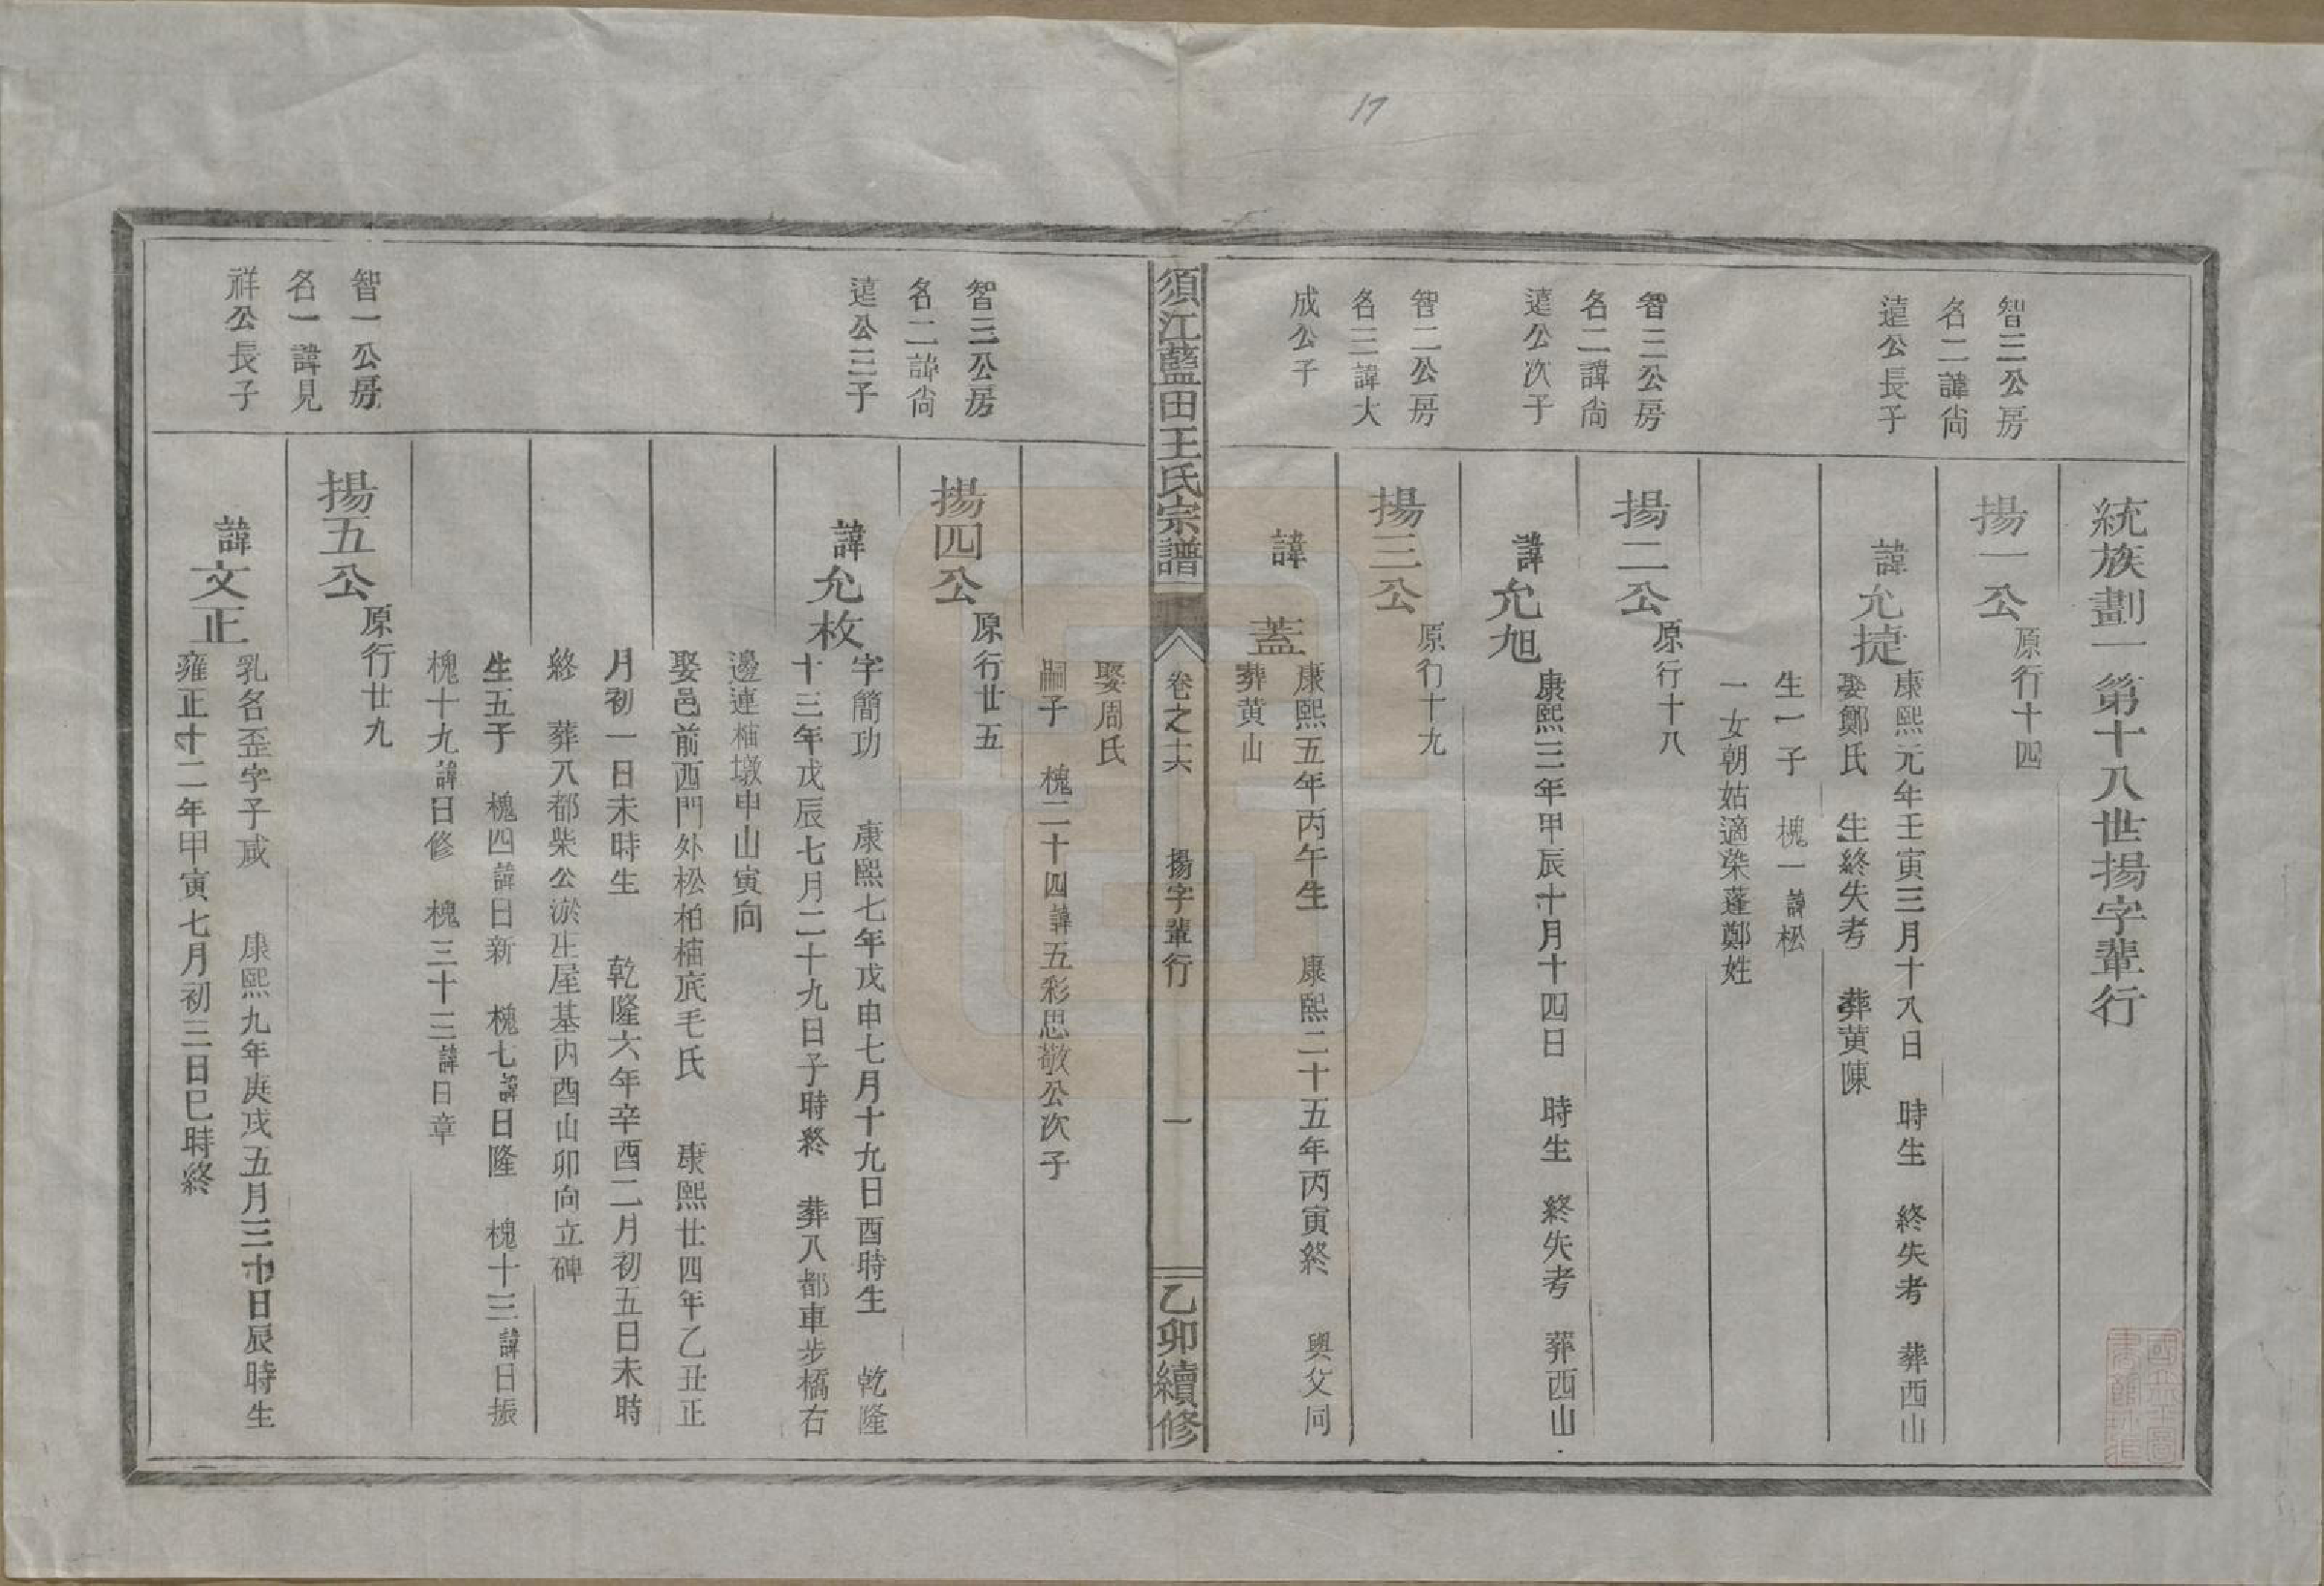 17
統族劃一第十八世揚字輩行
智三公房
名二諱尙
遠公長子
揚一公 原行十四
諱允捷
康熙元年壬寅三月十八日 時生 終失考 葬西山
娶鄭氏 生終失考 葬黃陳
生一子 槐一諱松
一女朝姑適染蓬鄭姓
智三公房
名二諱尙
遠公次子
揚二公 原行十八
諱允旭
康熙三年甲辰十月十四日 時生 終失考 葬西山
智二公房
名三諱大
成公子
揚三公 原行十九
諱 蓋
康熙五年丙午生 康熙二十五年丙寅終 與父同
葬黃山
須江藍田王氏宗譜
卷之十六 揚字輩行 一
乙卯續修
娶周氏
嗣子 槐二十四諱五彩思敬公次子
智三公房
名二諱尙
遠公三子
揚四公 原行廿五
諱允枚
字簡功 康熙七年戊申七月十九日酉時生 乾隆
十三年戊辰七月二十九日子時終 葬八都車步橋右
邊連柚墩申山寅向
娶邑前西門外松柏柚底毛氏 康熙廿四年乙丑正
月初一日未時生 乾隆六年辛酉二月初五日未時
終 葬八都柴公淤庄屋基內酉山卯向立碑
生五子 槐四諱日新 槐七諱日隆 槐十三諱日振
槐十九諱日修 槐三十三諱日章
智一公房
名一諱見
祥公長子
揚五公 原行廿九
諱文正
乳名歪字子咸 康熙九年庚戌五月三十日辰時生
雍正十二年甲寅七月初三日巳時終